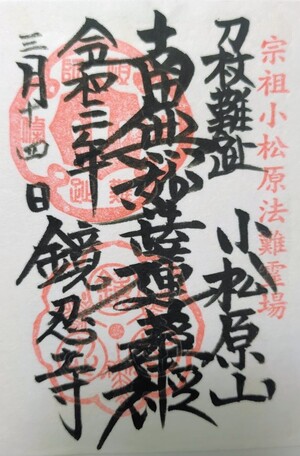 宗祖小松原法難霊場
刀杖難趾
小松原山
南無妙法蓮華経
令和三年
三月十四日
鏡忍寺